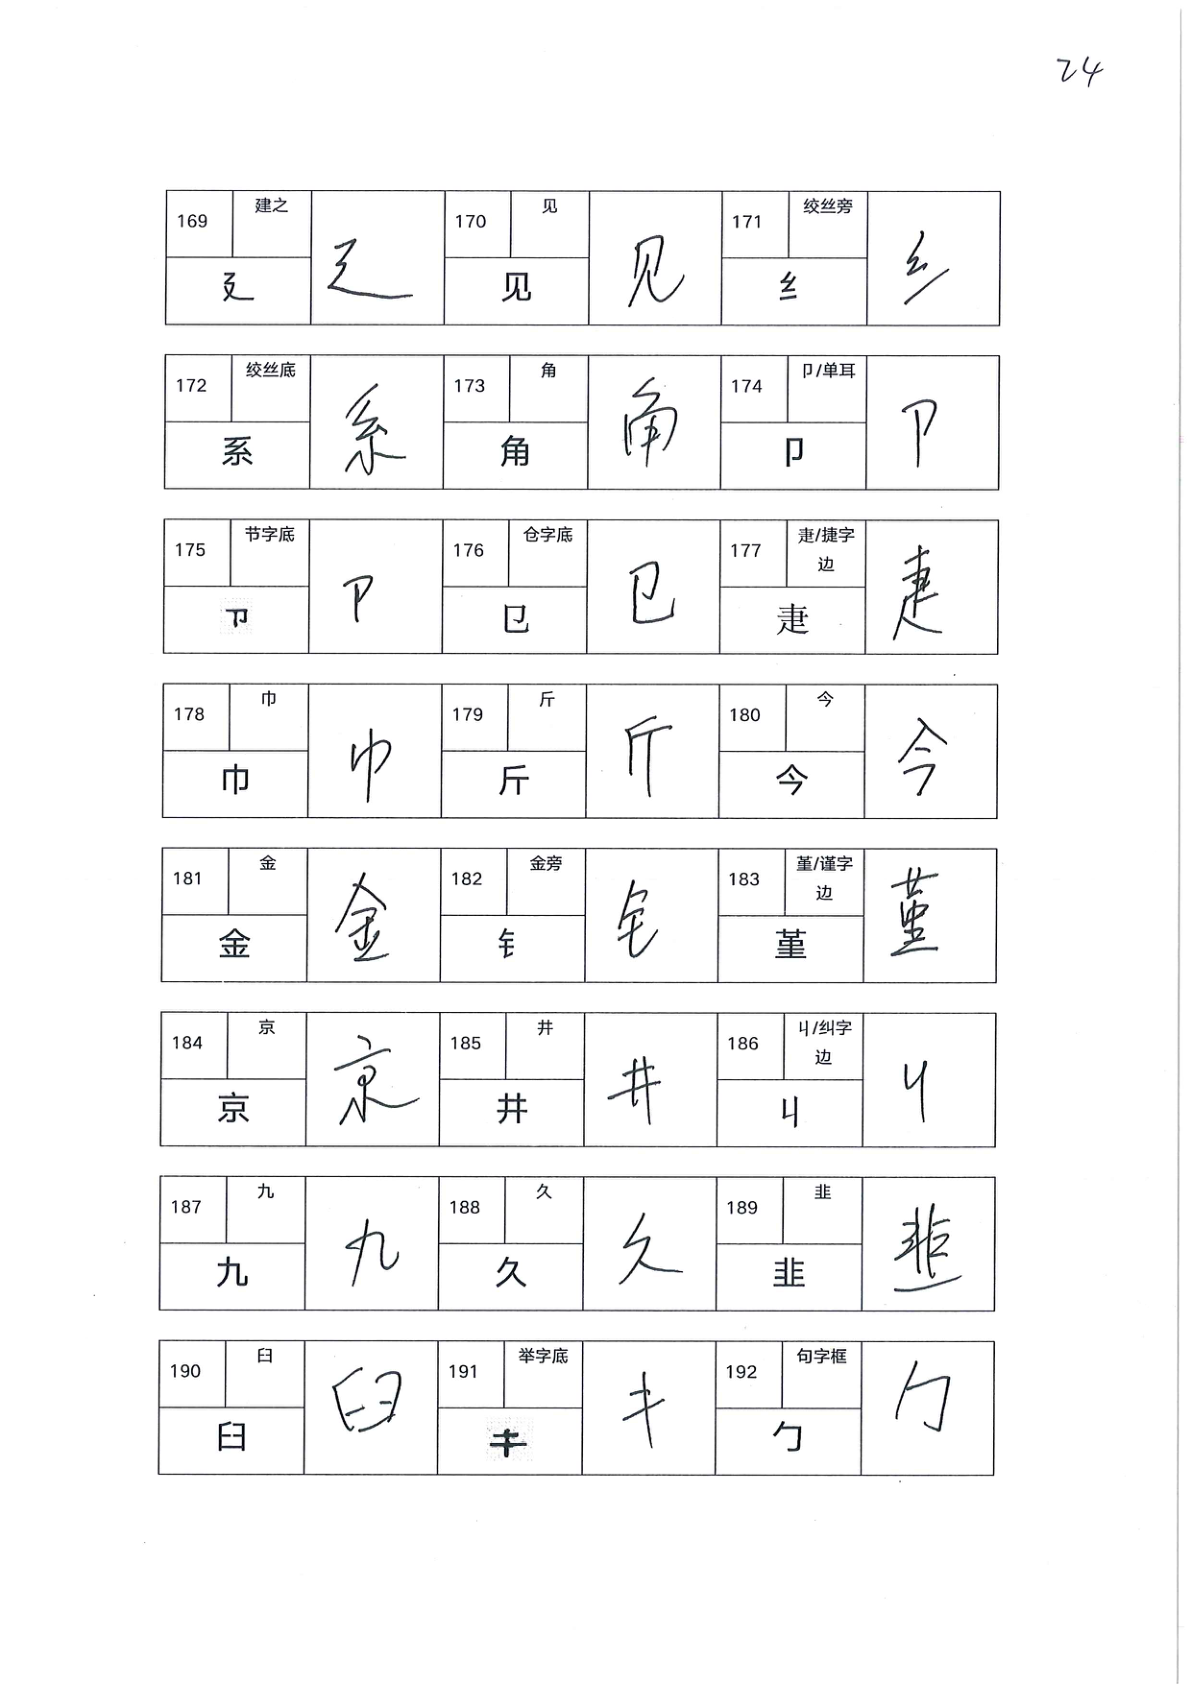 24
169 建之 廴 廴 170 见 见 见 171 绞丝旁 纟 纟
172 绞丝底 系 系 173 角 角 角 174 卩/单耳 卩 卩
175 节字底 卩 卩 176 仓字底 㔾 㔾 177 疌/捷字
边 疌 疌
178 巾 巾 巾 179 斤 斤 斤 180 今 今 今
181 金 金 金 182 金旁 钅 钅 183 堇/谨字
边 堇 堇
184 京 京 京 185 井 井 井 186 丩/纠字
边 丩 丩
187 九 九 九 188 久 久 久 189 韭 韭 韭
190 臼 臼 臼 191 举字底 192 句字框 勹 勹